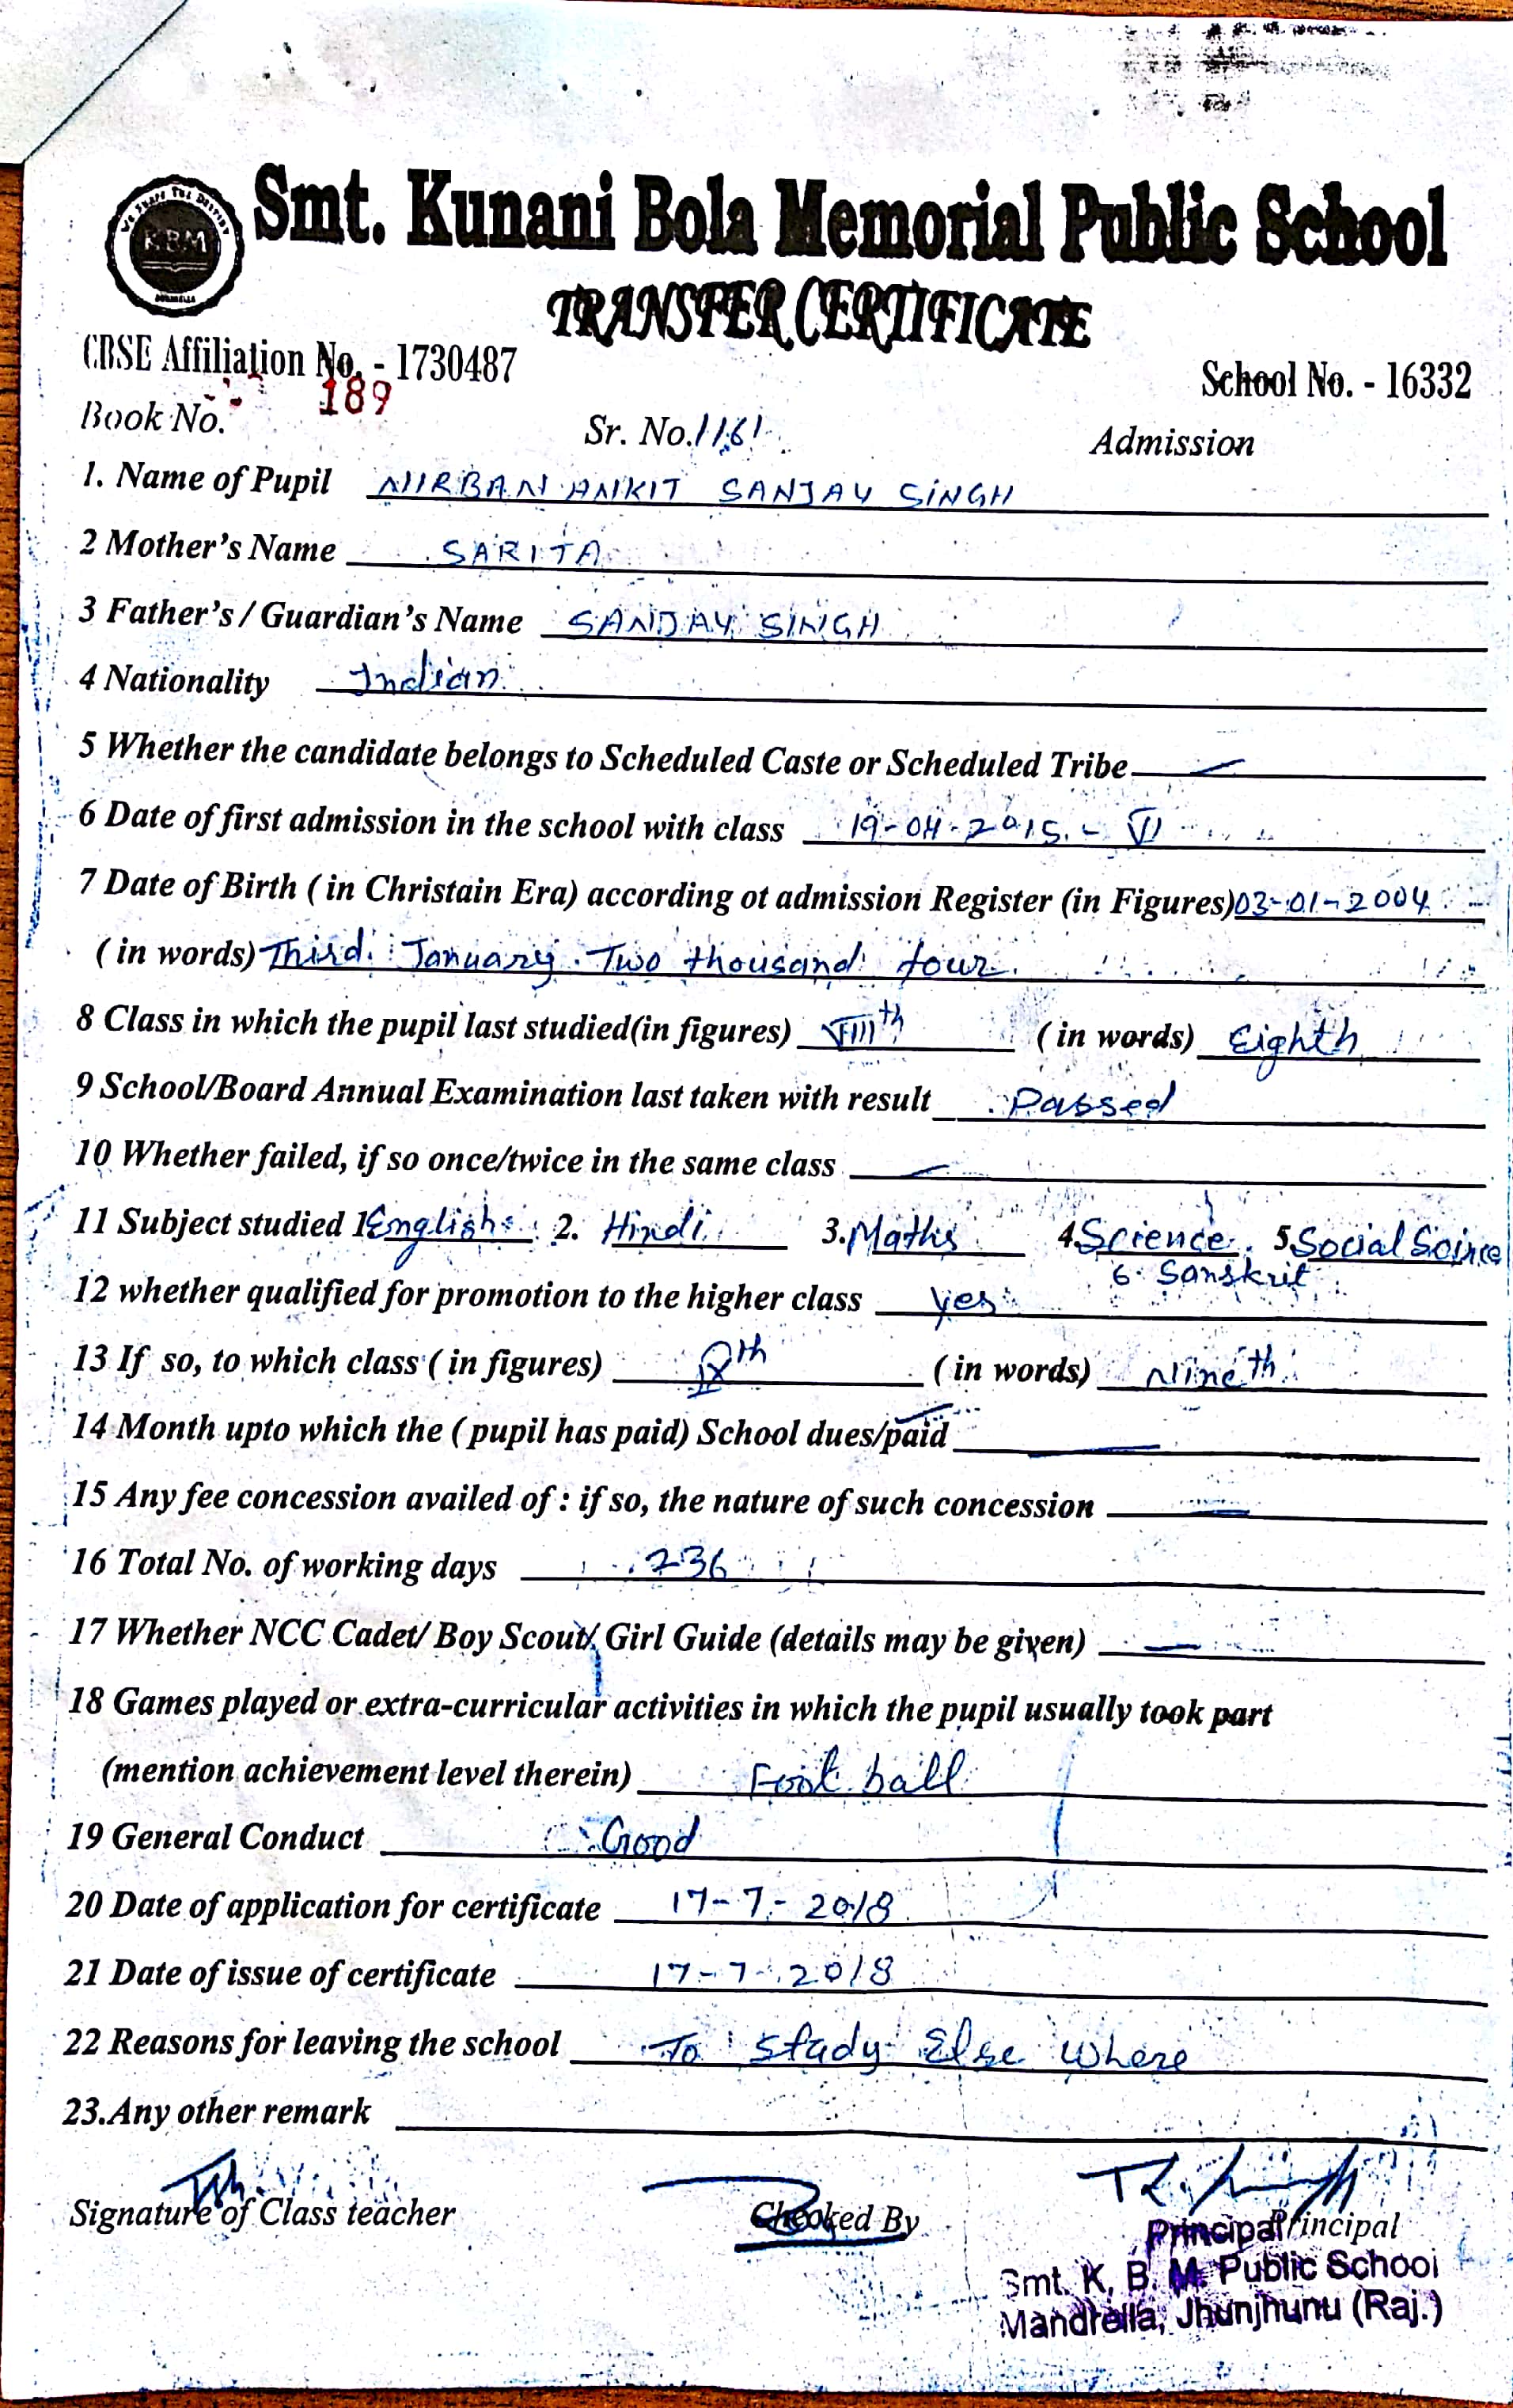 WE SHAPE THE DESTINY
KBM
MANDRELLA
Smt. Kunani Bola Memorial Public School
TRANSFER CERTIFICATE
CBSE Affiliation No. - 1730487
School No. - 16332
Book No. 189 Sr. No. 1161 Admission
1. Name of Pupil NIRBAN ANKIT SANJAY SINGH
2 Mother's Name SARITA
3 Father's / Guardian's Name SANJAY SINGH
4 Nationality Indian
5 Whether the candidate belongs to Scheduled Caste or Scheduled Tribe —
6 Date of first admission in the school with class 19-04-2015 - VI
7 Date of Birth ( in Christain Era) according ot admission Register (in Figures) 03-01-2004
( in words) Third January Two thousand four
8 Class in which the pupil last studied(in figures) VIIIth ( in words) Eighth
9 School/Board Annual Examination last taken with result Passed
10 Whether failed, if so once/twice in the same class —
11 Subject studied 1 English 2. Hindi 3. Maths 4. Science 5. Social Scince
6. Sanskrit
12 whether qualified for promotion to the higher class Yes
13 If so, to which class ( in figures) IXth ( in words) Nineth
14 Month upto which the ( pupil has paid) School dues/paid —
15 Any fee concession availed of : if so, the nature of such concession —
16 Total No. of working days 236
17 Whether NCC Cadet/ Boy Scout/ Girl Guide (details may be given) —
18 Games played or extra-curricular activities in which the pupil usually took part
(mention achievement level therein) Foot ball
19 General Conduct Good
20 Date of application for certificate 17-7-2018
21 Date of issue of certificate 17-7-2018
22 Reasons for leaving the school To stady Else where
23.Any other remark
Signature of Class teacher Checked By Principal
Principal
Smt. K. B. M. Public School
Mandrella, Jhunjhunu (Raj.)